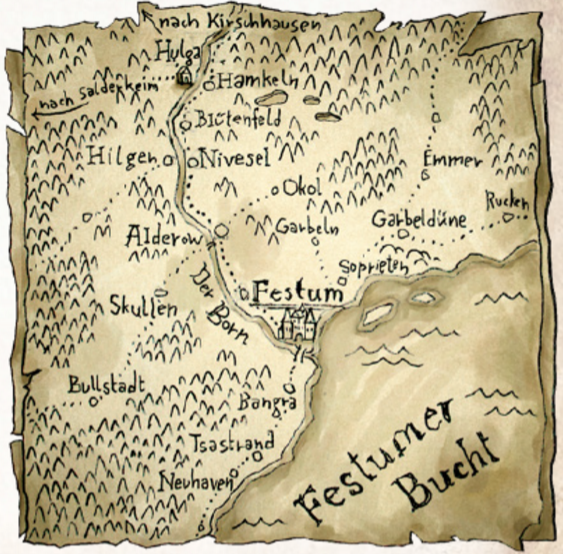 nach Kirschhausen
Hulga
Hamkeln
nach Salderkeim
Blütenfeld
Hilgen
Nivesel
Emmer
Okol
Rucken
Garbeln
Garbeldüne
Alderow
Soprieten
Festum
Skullen
Der Born
Bullstadt
Bangra
Tsastrand
Neuhaven
Festumer
Bucht